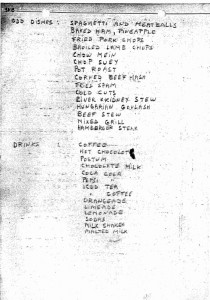 ODD DISHES : SPAGHETTI AND MEATBALLS
BAKED HAM, PINEAPPLE
FRIED PORK CHOPS
BROILED LAMB CHOPS
CHOW MEIN
CHOP SUEY
POT ROAST
CORNED BEEF HASH
FRIED SPAM
COLD CUTS
KIDNEY STEW
HUNGARIAN GOULASH
BEEF STEW
MIXED GRILL
HAMBURGER STEAK
DRINKS : COFFEE
HOT CHOCOLATE
POSTUM
CHOCOLATE MILK
COCA COLA
PEPSI "
ICED TEA
" COFFEE
ORANGEADE
LIMEADE
LEMONADE
SODAS
MILK SHAKES
MALTED MILK